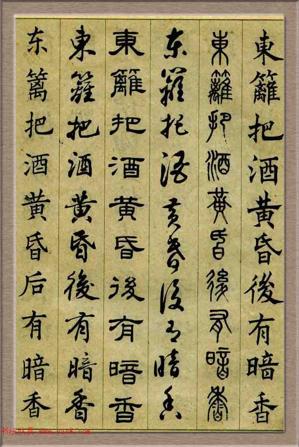 東籬把酒黃昏後有暗香
東籬把酒黃昏後有暗香
東籬把酒黃昏後有暗香
東籬把酒黃昏後有暗香
東籬把酒黃昏後有暗香
东篱把酒黄昏后有暗香